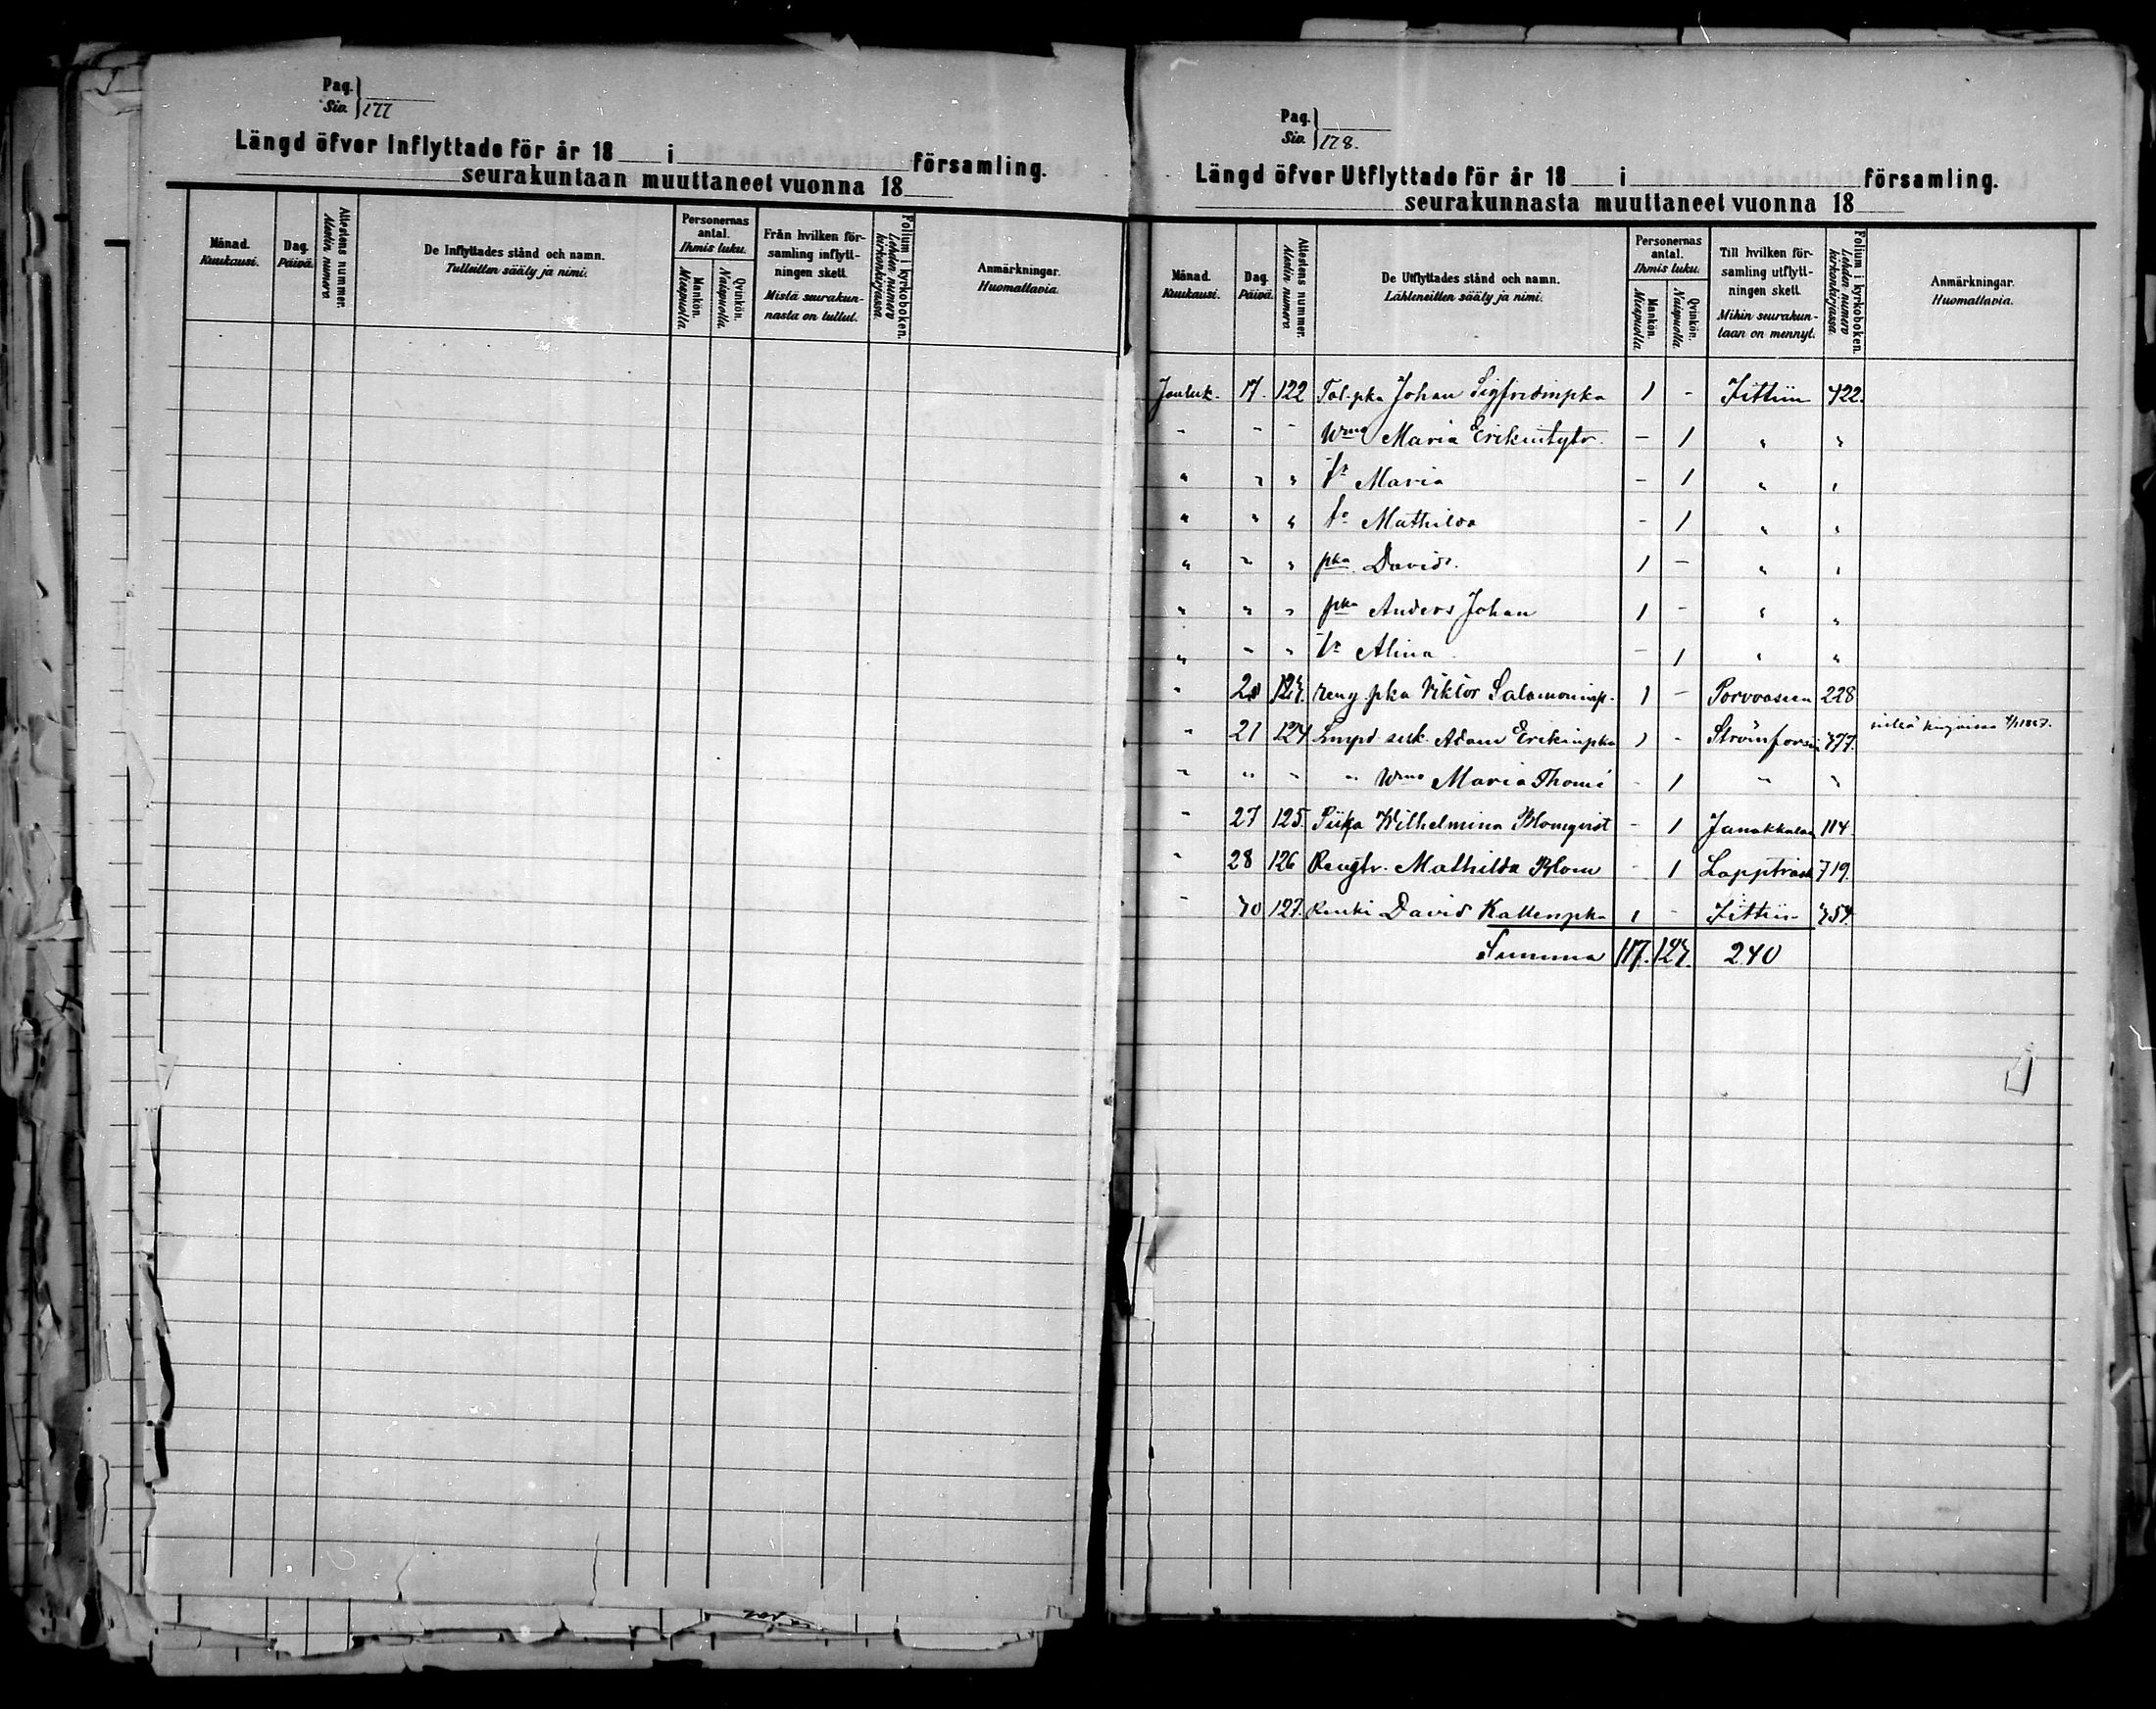 Pag.
Siv. 177
Längd öfver Inflyttade för år 18 i församling.
seurakuntaan muuttaneet vuonna 18
Månad. Kuukausi.
Dag. Päivä.
Attestens nummer. Alestin numero
De Inflyttades stånd och namn. Tulleitten sääty ja nimi.
Personernas antal. Ihmis luku.
Mankön. Miespuolla
Qvinkön. Naispuolla
Från hvilken församling inflyttningen skett. Mistä seurakunnasta on tullut.
Folium i kyrkoboken. Lehden numero kirkonkirjassa.
Anmärkningar. Huomattavia.
Pag.
Siv. 178.
Längd öfver Utflyttade för år 18 i församling.
seurakunnasta muuttaneet vuonna 18
Månad. Kuukausi.
Dag. Päivä.
Attestens nummer. Alestin numero.
De Utflyttades stånd och namn. Lähteneitten sääty ja nimi.
Personernas antal. Ihmis luku.
Mankön. Miespuolla
Qvinkön. Naispuolla
Till hvilken församling utflyttningen skett. Mihin seurakuntaan on mennyt.
Folium i kyrkoboken. Lehden numero kirkonkirjassa.
Anmärkningar. Huomattavia.
Jouluk. 17. 122 Tal. pka Johan Sigfridinpka 1 - Iittiin 422.
" " " Wmo Maria Erikintytr. - 1 " "
" " " tr Maria - 1 " "
" " " tr Mathilda - 1 " "
" " " pka David. 1 - " "
" " " pka Anders Johan 1 - " "
" " " tr Alina - 1 " "
" 123. reng pka Viktor Salamoninp. 1 - Porvooseen 228
" 21 124 Adam Erikinpka 1 - Strömforsiin 377.
" " " " Wmo Maria Thom - 1 " "
" 27 125. Piika Wilhelmina Blomqvist - 1 Janakkalaan 114.
" 28 126 Rengtr. Mathilda Blom - 1 Lappträsk 719.
" 30 127. Renki David Kallenpka 1 - Iittiin 354.
Summa 117. 123. 240